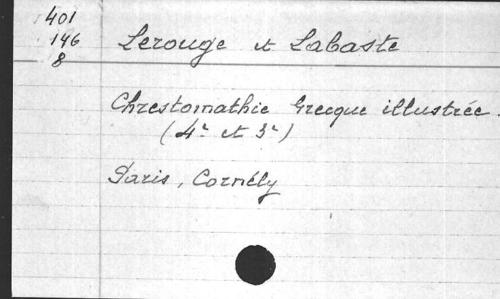 401
146
8
Lerouge et Labaste
Chrestomathie Grecque illustrée.
(4e et 3e)
Paris, Cornély